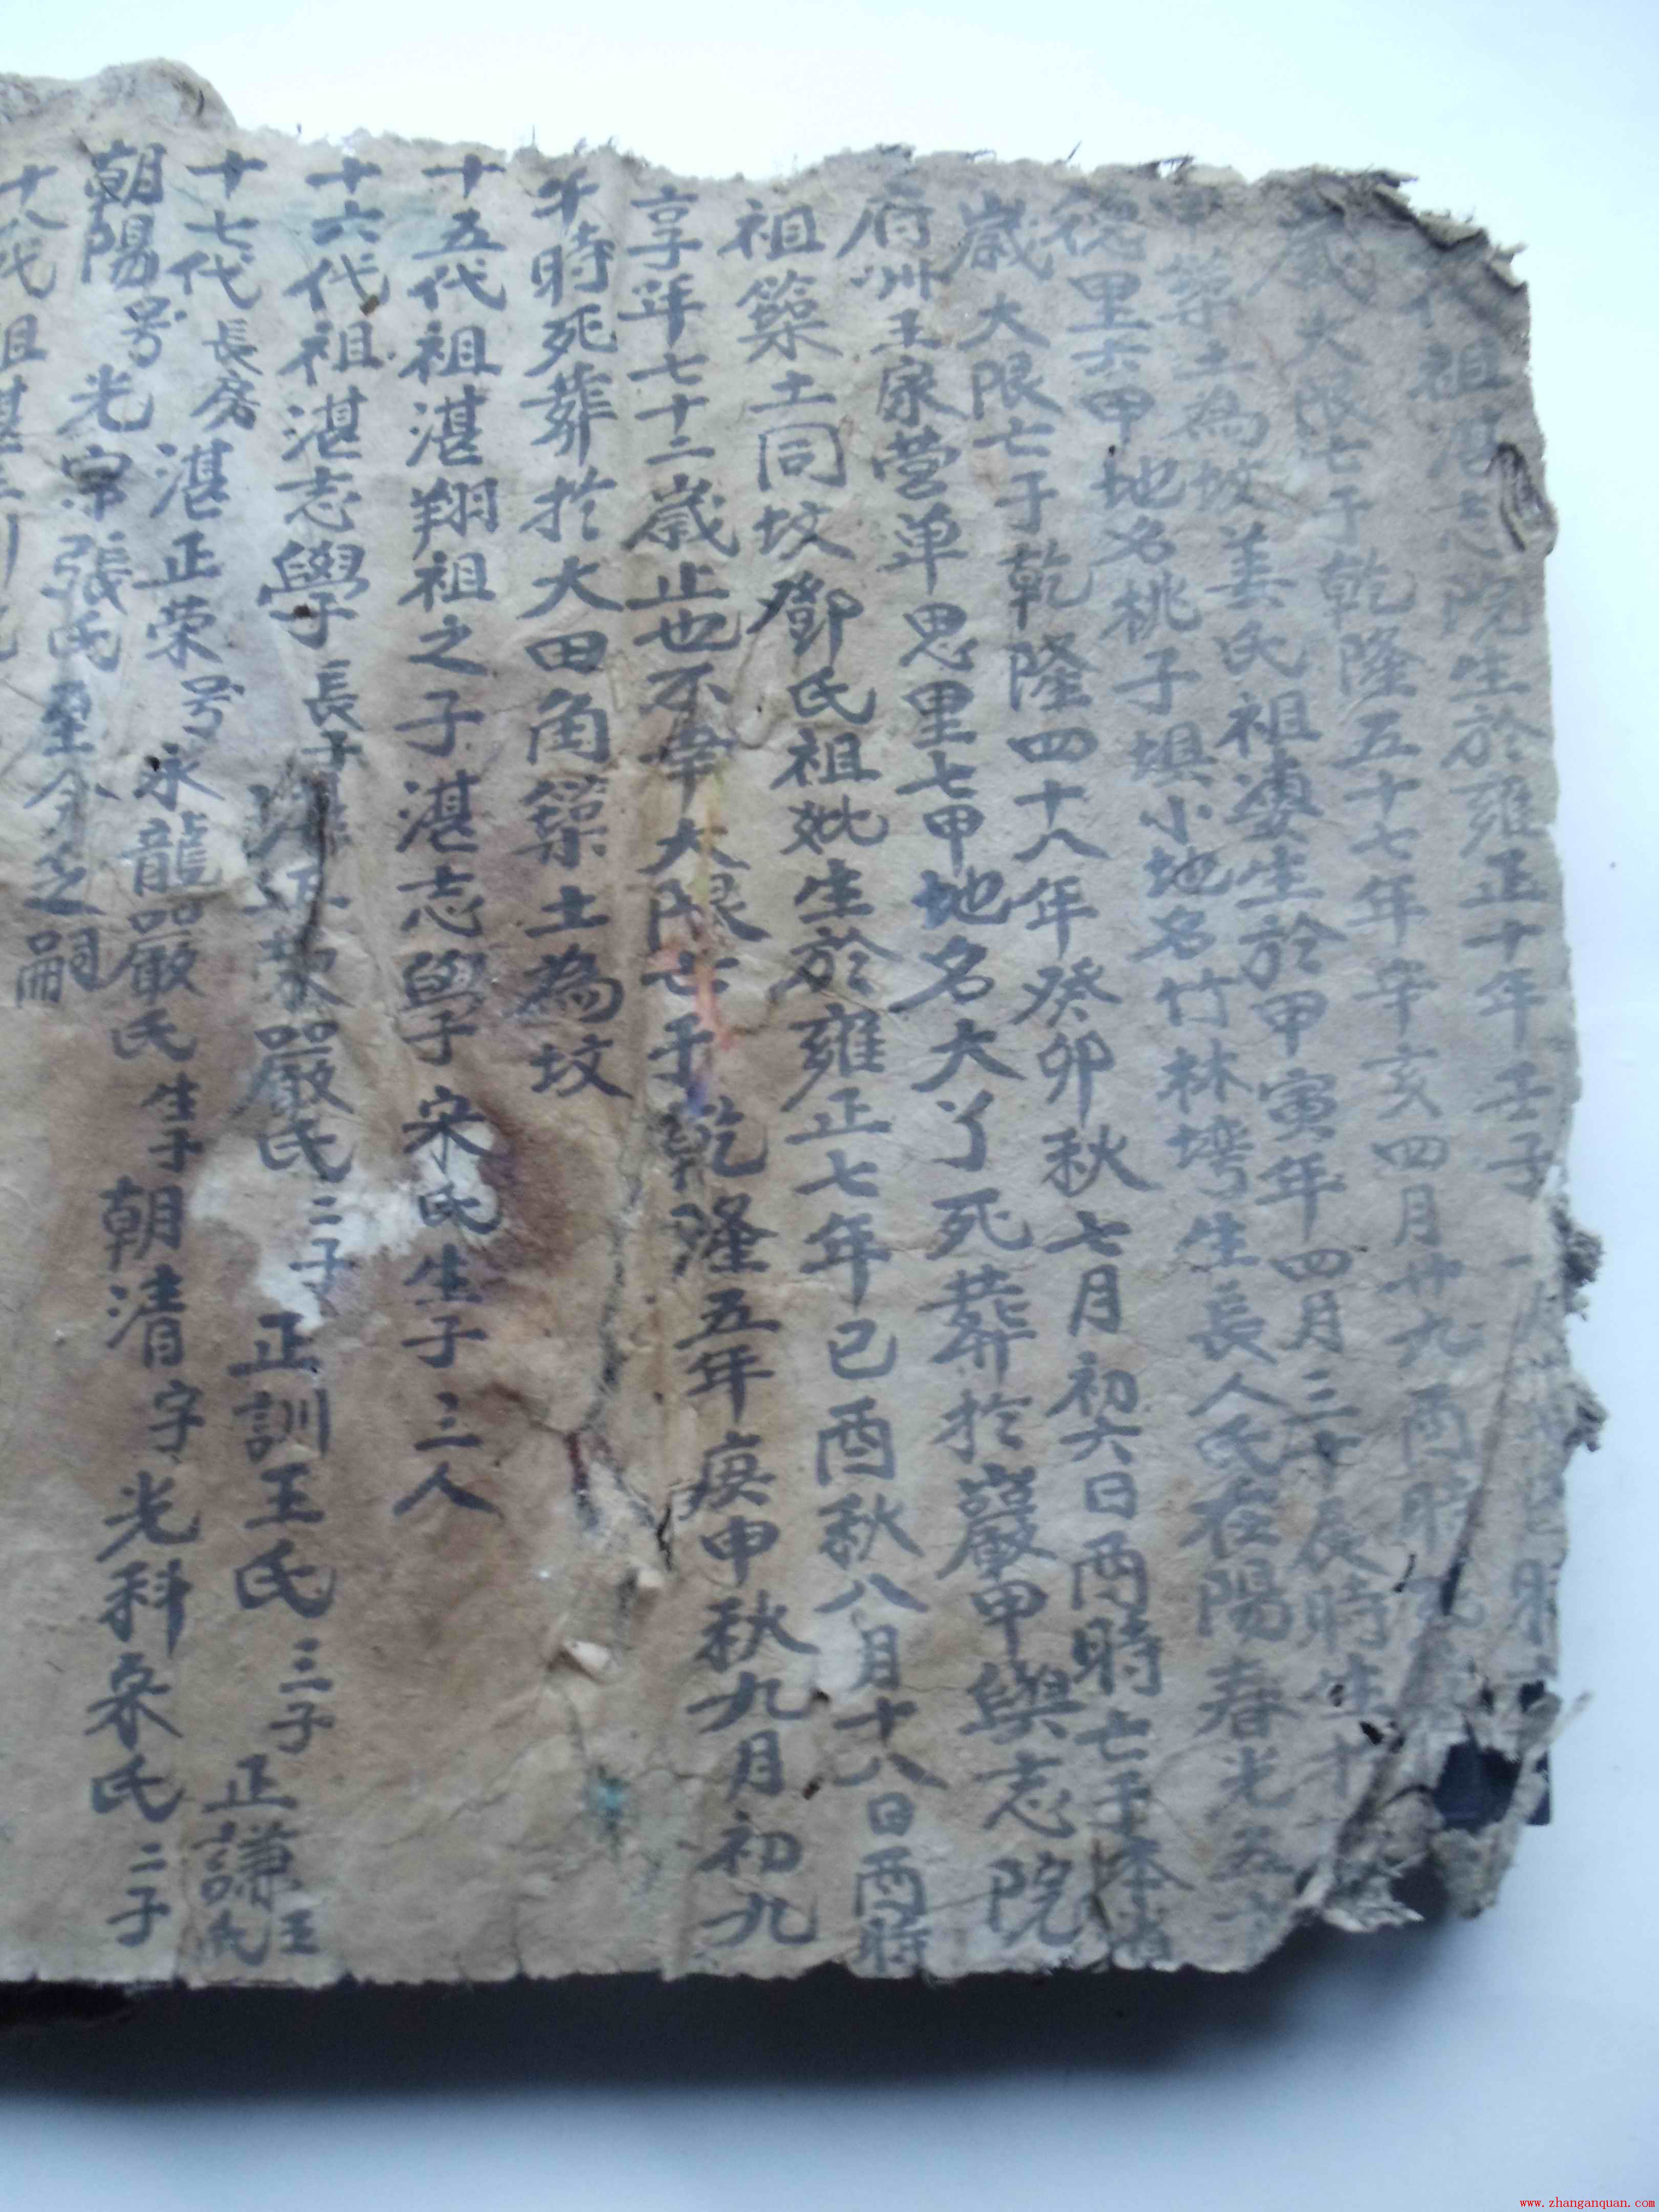 代祖湛志院生於雍正十年壬子
歲大限亡于乾隆五十七年 亥四月廿九酉時
葬土為坟姜氏祖婆生於甲寅年四月三十辰時生
德里六甲地名桃子埧小地名竹林塆生長人氏在陽春光五十
歲大限亡于乾隆四十八年癸卯秋七月初六日酉時亡于本省
府州王家營单思里七甲地名大丫死葬於巖甲與志院
祖築土同坟鄧氏祖妣生於雍正七年己酉秋八月十八日酉時
享年七十二歲止也不幸大限亡于乾隆五年庚申秋九月初九
午時死葬於大田角築土為坟
十五代祖湛翔祖之子湛志學子宋氏生子三人
十六代祖湛志學子長子 嚴氏二子正訓王氏三子正謙王氏
十七代長房湛正荣号永龍嚴氏生子朝清字光科袁氏二子
朝陽号光宗張氏至今之嗣
十八代祖湛